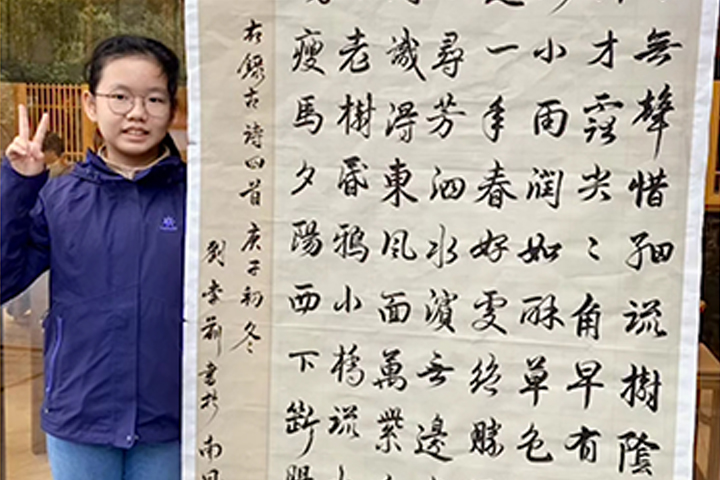 無聲惜細流樹陰
才露尖〻角早有
小雨潤如酥草色
一年春好處絕勝
尋芳泗水濱无邊
識得東風面萬紫
老樹昏鴉小橋流
瘦馬夕陽西下斷腸
右錄古詩四首庚子初冬
劉 書於南